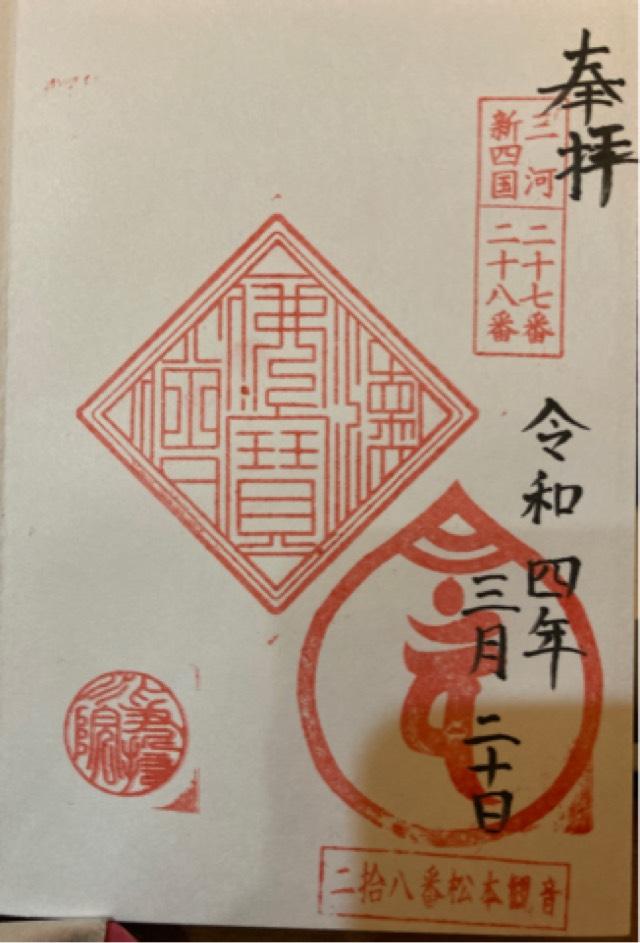 奉拝
三河
新四国
二十七番
二十八番
令和四年
三月二十日
佛法僧寶
二拾八番松本観音